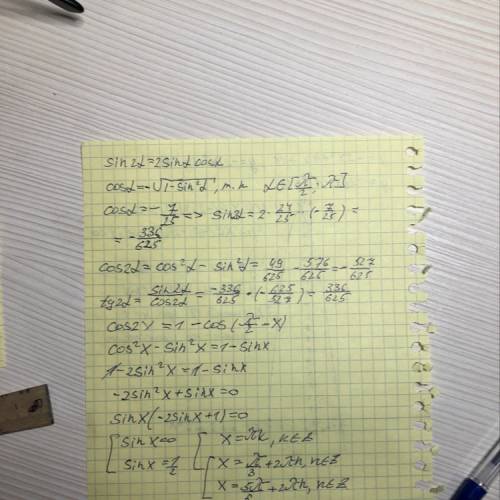 sin2α=2sinα cosα
cosα=-√(1-sin²α), т.к α∈[π/2; π]
cosα=-7/25 => sin2α=2·24/25·(-7/25)=
=-336/625
cos2α=cos²α-sin²α=49/625-576/625=-527/625
tg2α=sin2α/cos2α=-336/625·(-625/527)=336/625
cos2x=1-cos(π/2-x)
cos²x-sin²x=1-sinx
1-2sin²x=1-sinx
-2sin²x+sinx=0
sinx(-2sinx+1)=0
[ sinx=0 [ x=πk, k∈Z
[ sinx=1/2 [ x=π/3+2πn, n∈Z
x=5π/6+2πn, n∈Z